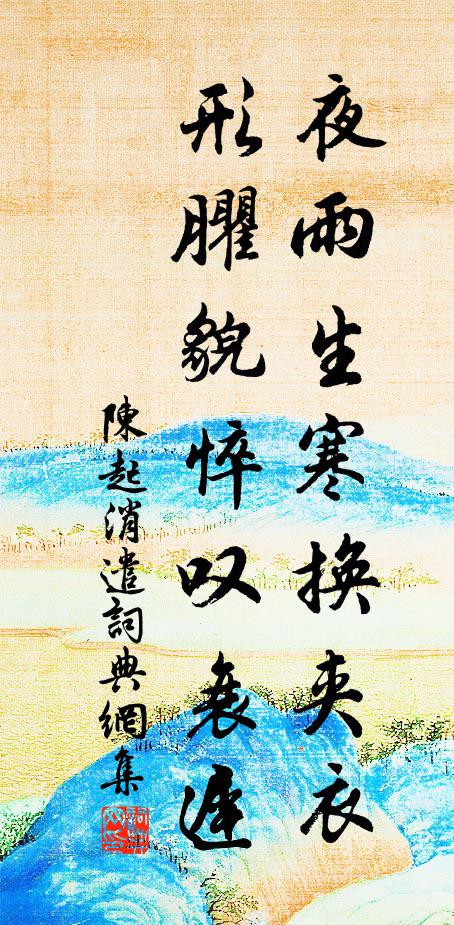 夜雨生寒換夾衣
形臞貌悴叹衰遲
陳起消遣詞典網集